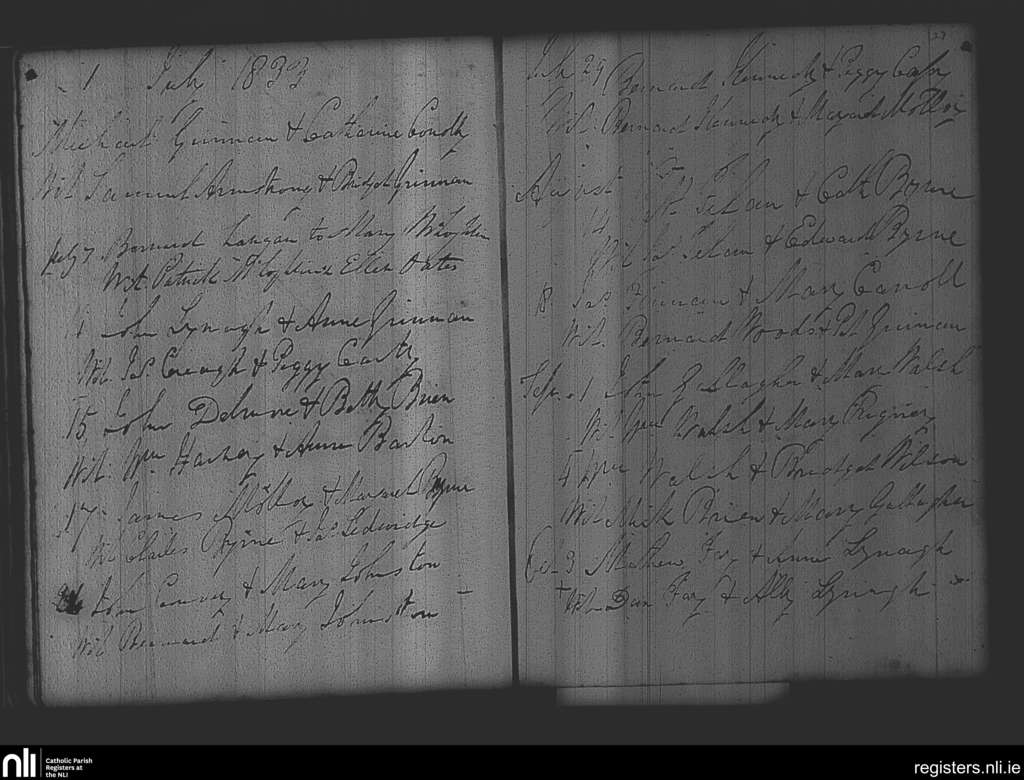 1 July 1833
Michael Guinan & Catharine Conolly
Wit. Samuel Armstrong & Bridget Grinnan
July 7 Bernard Langan to Mary McLoghlin
Wit. Patrick McLoghlin & Ellen Oates
11 John Lynagh & Anne Grinnan
Wit. Jas. Creagh & Peggy Carty
15 John Delmere & Betty Brien
Wit. Wm Harvey & Anne Barton
17 James Molloy & Margaret Byrne
Wit Charles Byrne & Jas. Ledwidge
John Conway & Mary Johnston
Wit Bernard & Mary Johnston
23
July 29 Bernard Kennedy & Peggy
Wit. Bernard Kennedy & Margaret Molloy
August
14 Pt. Pehan & Cath Byrne
Wit Jas. Pehan & Edward Byrne
18 Jas. & Mary Carroll
Wit. Bernard Woods & Pat Guinan
Sepr. 1 John Gallagher & Mary Walsh
Wit. Wm Walsh & Mary
4 Wm Walsh & Bridget Wilson
Wit Mick Brien & Mary Gallagher
Oct 3 Mathew Fay & Anne Lynagh
Wit Dan Fay & Ally Lynagh
nli
Catholic Parish
Registers at
the NLI
registers.nli.ie